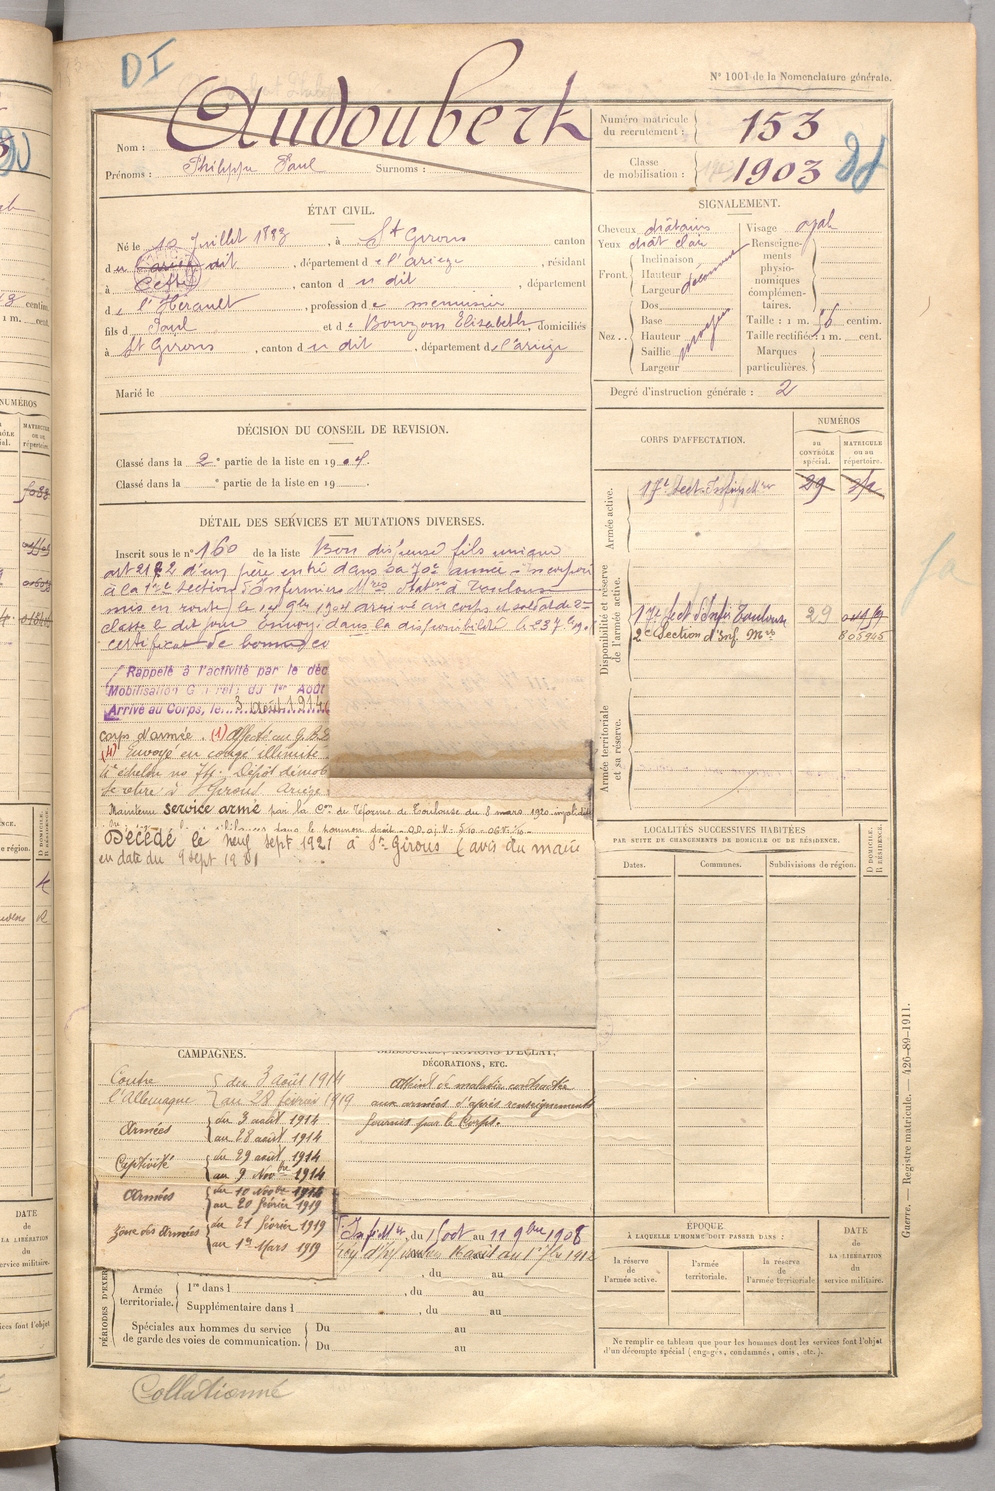 DI
N° 1001 de la Nomenclature générale.
Nom : Audoubert
Prénoms : Philippe Paul Surnoms :
Numéro matricule du recrutement : 153
Classe de mobilisation : 1903
ÉTAT CIVIL.
Né le 12 Juillet 1883, à St Girons canton
du dit, département de l'Ariège, résidant
à Cette, canton du dit, département
de l'Hérault, profession de menuisier
fils de Paul et de Bouzom Elisabeth, domiciliés
à St Girons, canton du dit, département de l'Ariège
Marié le
SIGNALEMENT.
Cheveux châtains
Yeux chât clair
Front. Inclinaison
Hauteur
Largeur
Nez. Dos
Base
Hauteur moyen
Saillie
Largeur
Visage ovale
Renseignements physionomiques complémentaires.
Taille : 1 m. 56 centim.
Taille rectifiée : 1 m. cent.
Marques particulières.
Degré d'instruction générale : 2
DÉCISION DU CONSEIL DE REVISION.
Classé dans la 2e partie de la liste en 1904.
Classé dans la e partie de la liste en 19 .
DÉTAIL DES SERVICES ET MUTATIONS DIVERSES.
Inscrit sous le n° 160 de la liste Bon dispensé fils unique
d'un père entré dans sa 70e année - incorporé
à la 17e Section d'Infirmiers Mres à Toulouse
mis en route le 14 9bre 1904 arrivé au corps et soldat de 2e
classe le dit jour Envoyé dans la disponibilité le 23 7bre
certificat de bonne co
Rappelé à l'activité par le déc
Mobilisation Générale du 1er Août
Arrivé au Corps, le 3 août 1914
corps d'armée. (1)
(4) Envoyé en congé illimité
4e échelon no 74. Dépôt démob
se retire à St Girons Ariège
Maintenu service armé par la Con de réforme de Toulouse du 8 mars 1920
Décédé le neuf sept 1921 à St Girons (avis du maire
en date du 9 sept 1921
CORPS D'AFFECTATION.
NUMÉROS
au CONTRÔLE spécial.
MATRICULE ou au répertoire.
Armée active.
29
Disponibilité et réserve de l'armée active.
17e Sect d'Infirs Toulouse 29
2e Section d'Inf. Mres 805945
Armée territoriale et sa réserve.
LOCALITÉS SUCCESSIVES HABITÉES
PAR SUITE DE CHANGEMENTS DE DOMICILE OU DE RÉSIDENCE.
Dates. Communes. Subdivisions de région. D DOMICILE. R RÉSIDENCE.
CAMPAGNES.
Contre l'Allemagne du 3 août 1914
au 28 février 1919
Armées du 3 août 1914
au 28 août 1914
Captivité du 29 août 1914
au 9 Novbre 1914
Armées du 10 Novbre 1914
au 20 février 1919
Zone des Armées du 21 février 1919
au 1er Mars 1919
BLESSURES, ACTIONS D'ÉCLAT,
DÉCORATIONS, ETC.
Atteint de maladie contractée
aux armées d'après renseignements
fournis par le Corps.
PÉRIODES D'EXER
du 15 oct au 11 9bre 1908
, du au
Armée territoriale. 1re dans l , du au
Supplémentaire dans l , du au
Spéciales aux hommes du service de garde des voies de communication. Du au
Du au
ÉPOQUE
À LAQUELLE L'HOMME DOIT PASSER DANS :
la réserve de l'armée active.
l'armée territoriale.
la réserve de l'armée territoriale
DATE de LA LIBÉRATION du service militaire.
Ne remplir ce tableau que pour les hommes dont les services font l'objet
d'un décompte spécial (engagés, condamnés, omis, etc.).
Guerre. — Registre matricule. — 426-89-1911.
Collationné